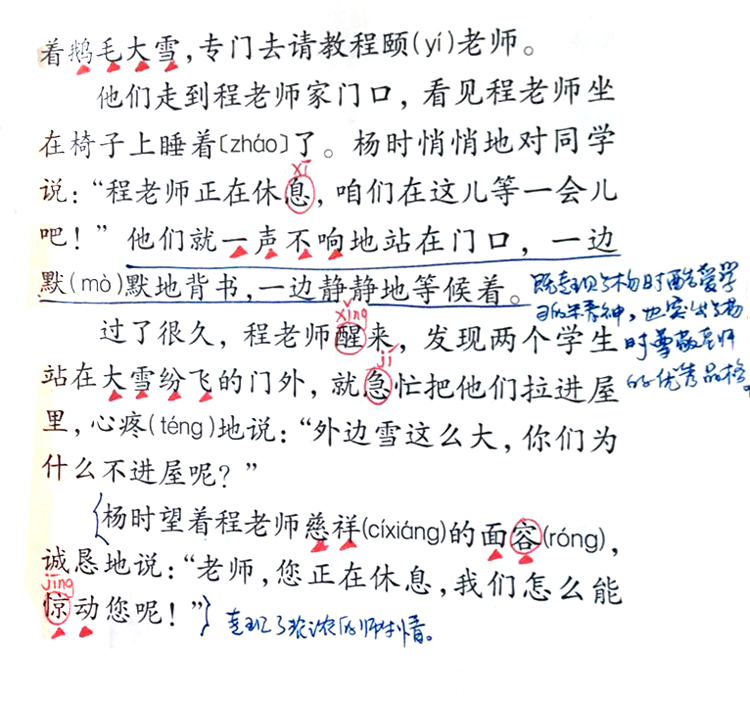 着鹅毛大雪，专门去请教程颐(yí)老师。
他们走到程老师家门口，看见程老师坐
在椅子上睡着〔zháo〕了。杨时悄悄地对同学
xī
说：“程老师正在休息，咱们在这儿等一会儿
吧！”他们就一声不响地站在门口，一边
默(mò)默地背书，一边静静地等候着。
既表现了杨时酷爱学
习的精神，也突出了杨
时尊敬老师
的优秀品格。
xǐng
过了很久，程老师醒来，发现两个学生
jí
站在大雪纷飞的门外，就急忙把他们拉进屋
里，心疼(téng)地说：“外边雪这么大，你们为
什么不进屋呢？”
杨时望着程老师慈祥(cíxiáng)的面容(róng)，
诚恳地说：“老师，您正在休息，我们怎么能
jīng
惊动您呢！”
表现了浓浓的师生情。